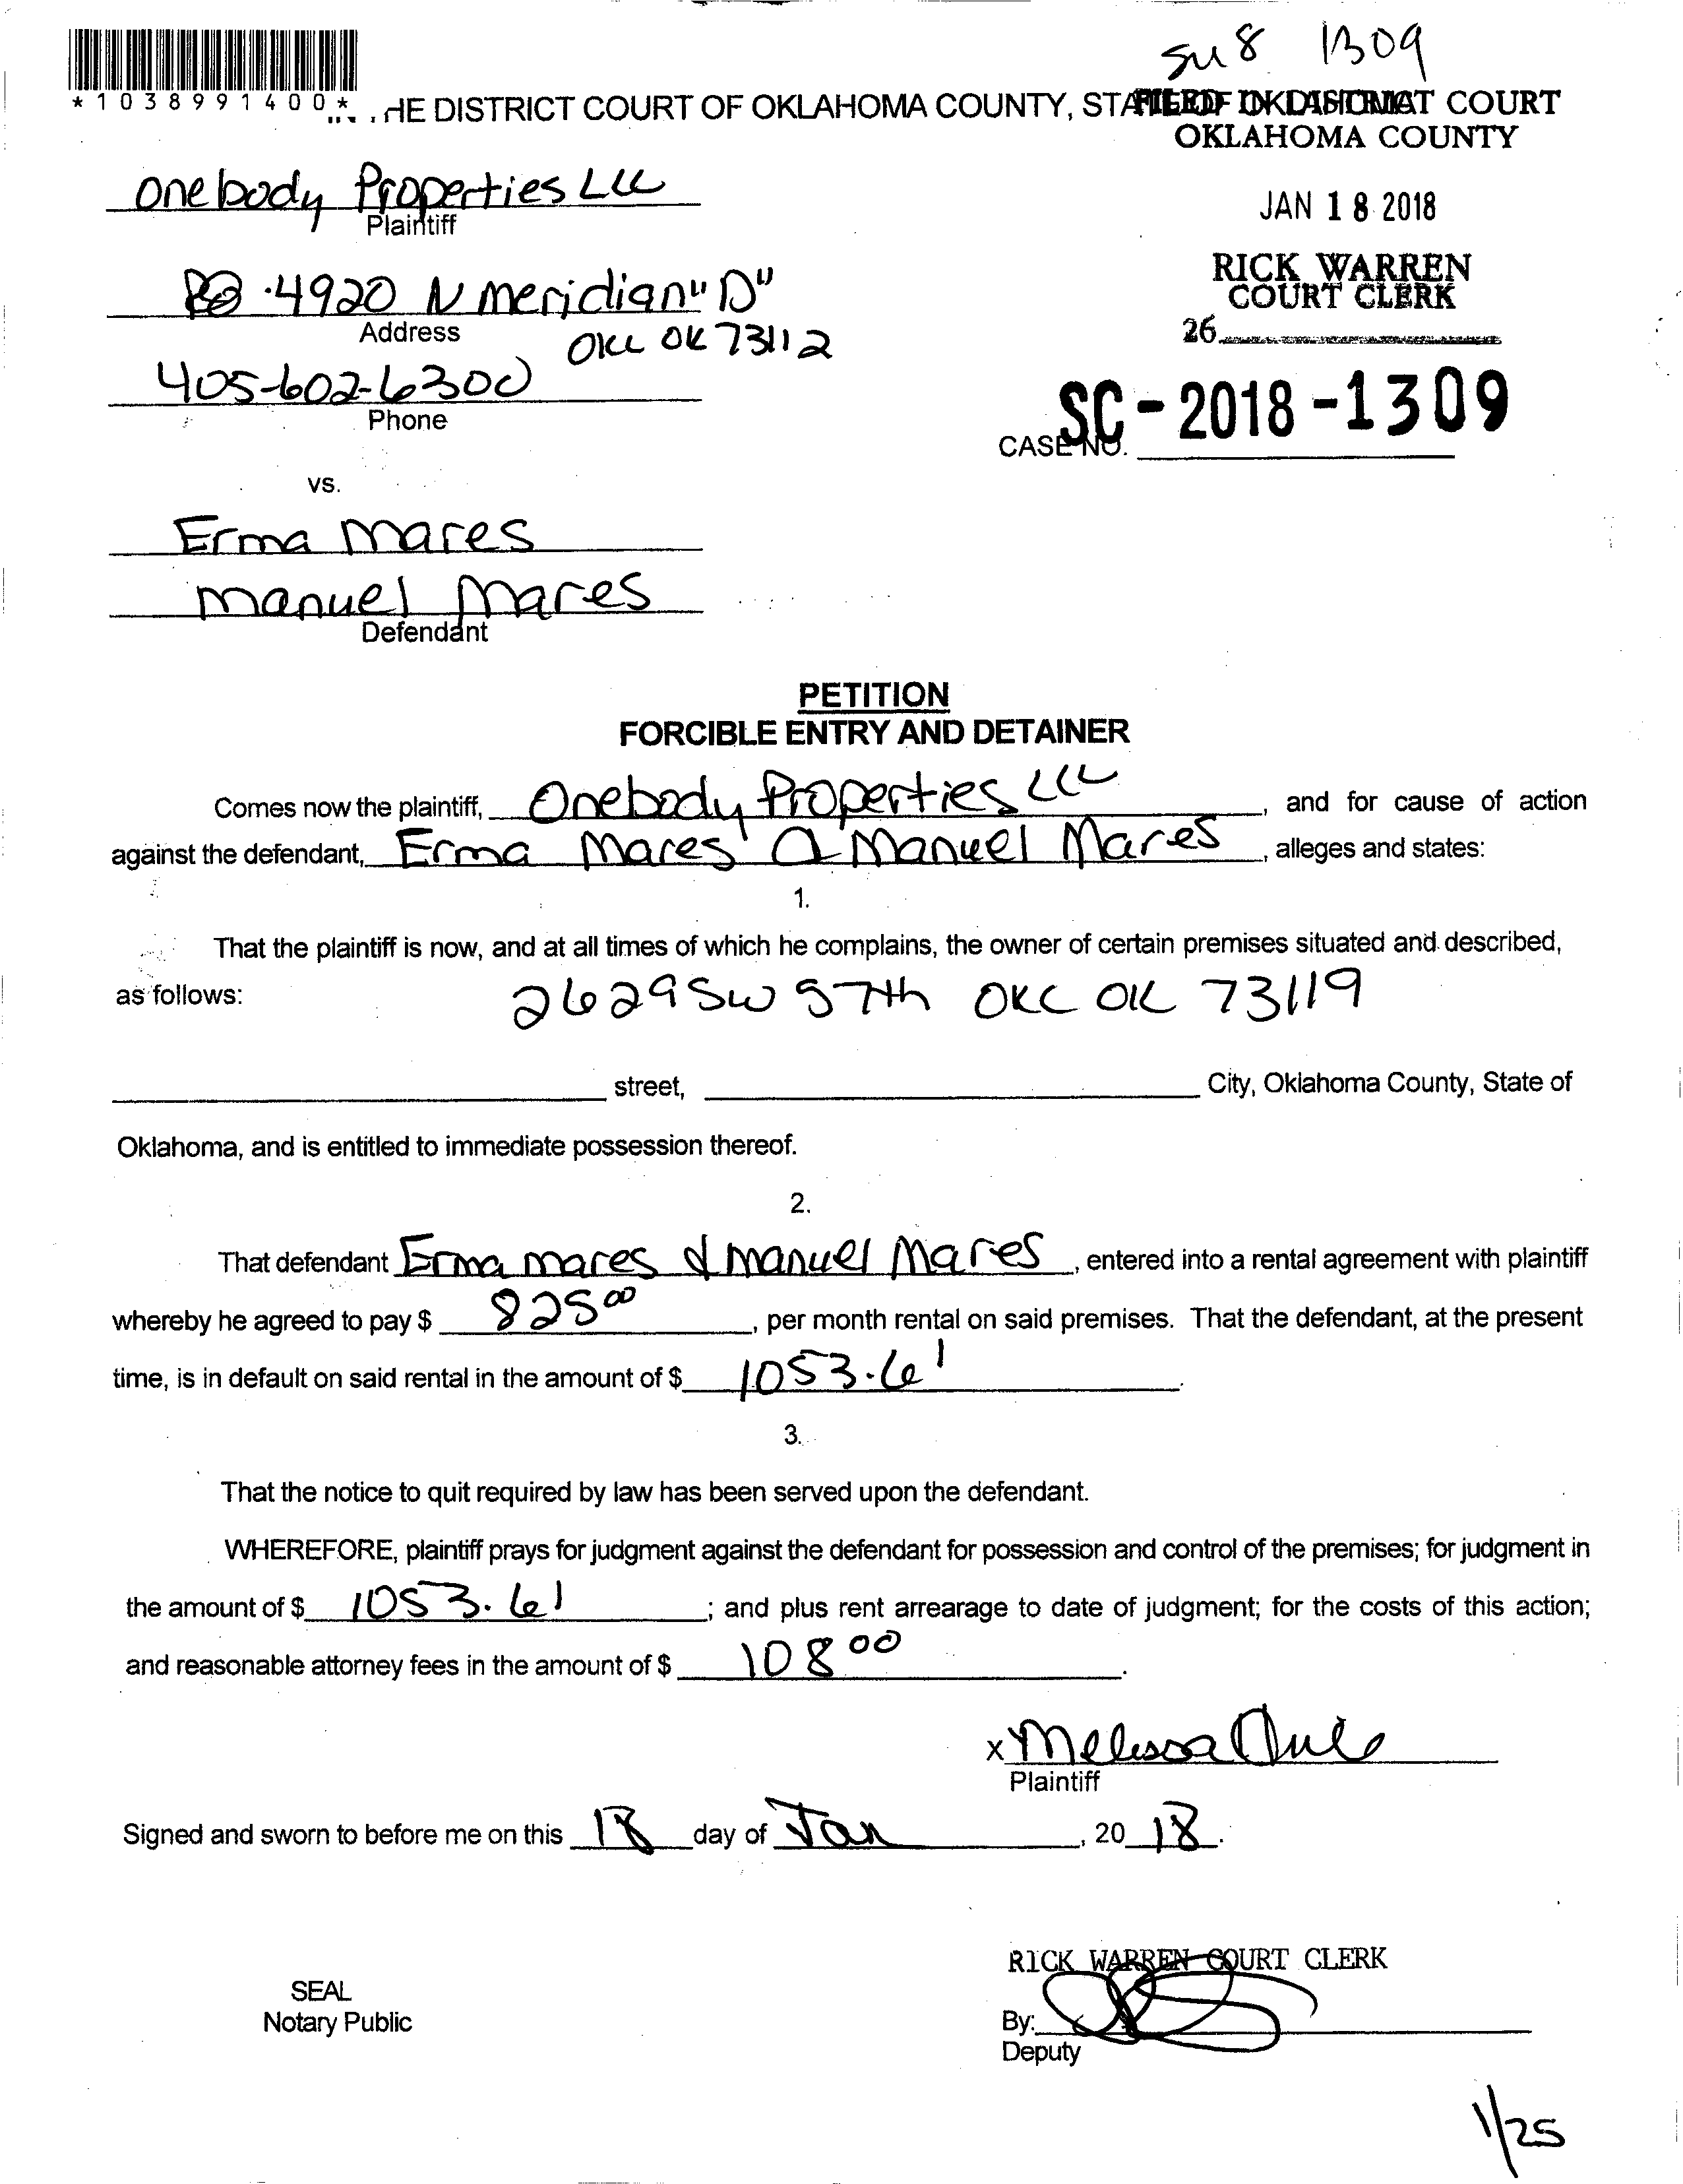 SM8 1309
*1038991400*
.. . HE DISTRICT COURT OF OKLAHOMA COUNTY, STATE OF OKLAHOMA
FILED IN DISTRICT COURT
OKLAHOMA COUNTY
JAN 18 2018
RICK WARREN
COURT CLERK
26
SC-2018-1309
CASE NO.
Onebody Properties LLC
Plaintiff
4920 N Meridian "D"
Address
OKC OK 73112
405-602-6300
Phone
vs.
Erma Mares
Manuel Mares
Defendant
PETITION
FORCIBLE ENTRY AND DETAINER
Comes now the plaintiff, Onebody Properties LLC, and for cause of action
against the defendant, Erma Mares & Manuel Mares, alleges and states:
1.
That the plaintiff is now, and at all times of which he complains, the owner of certain premises situated and described,
as follows: 2629 SW 57th OKC OK 73119
street, City, Oklahoma County, State of
Oklahoma, and is entitled to immediate possession thereof.
2.
That defendant Erma Mares & Manuel Mares, entered into a rental agreement with plaintiff
whereby he agreed to pay $ 825 00, per month rental on said premises. That the defendant, at the present
time, is in default on said rental in the amount of $ 1053.61.
3.
That the notice to quit required by law has been served upon the defendant.
WHEREFORE, plaintiff prays for judgment against the defendant for possession and control of the premises; for judgment in
the amount of $ 1053.61; and plus rent arrearage to date of judgment; for the costs of this action;
and reasonable attorney fees in the amount of $ 108 00.
x Melissa
Plaintiff
Signed and sworn to before me on this 18 day of Jan, 20 18.
RICK WARREN COURT CLERK
SEAL
Notary Public
By:
Deputy
1/25